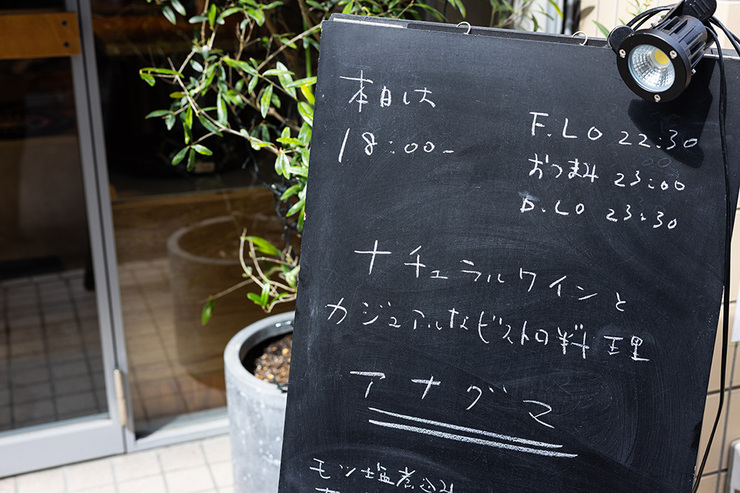 本日は
18:00-
F.LO 22:30
おつまみ 23:00
D.LO 23:30
ナチュラルワインと
カジュアルなビストロ料理
アナグマ
モツ塩煮込み